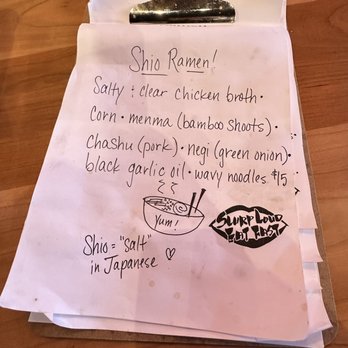 Shio Ramen!
Salty + clear chicken broth •
Corn • menma (bamboo shoots) •
Chashu (pork) • negi (green onion) •
black garlic oil • wavy noodles $15
Yum!
SLURP LOUD
EAT FAST
Shio = "salt"
in Japanese ♡